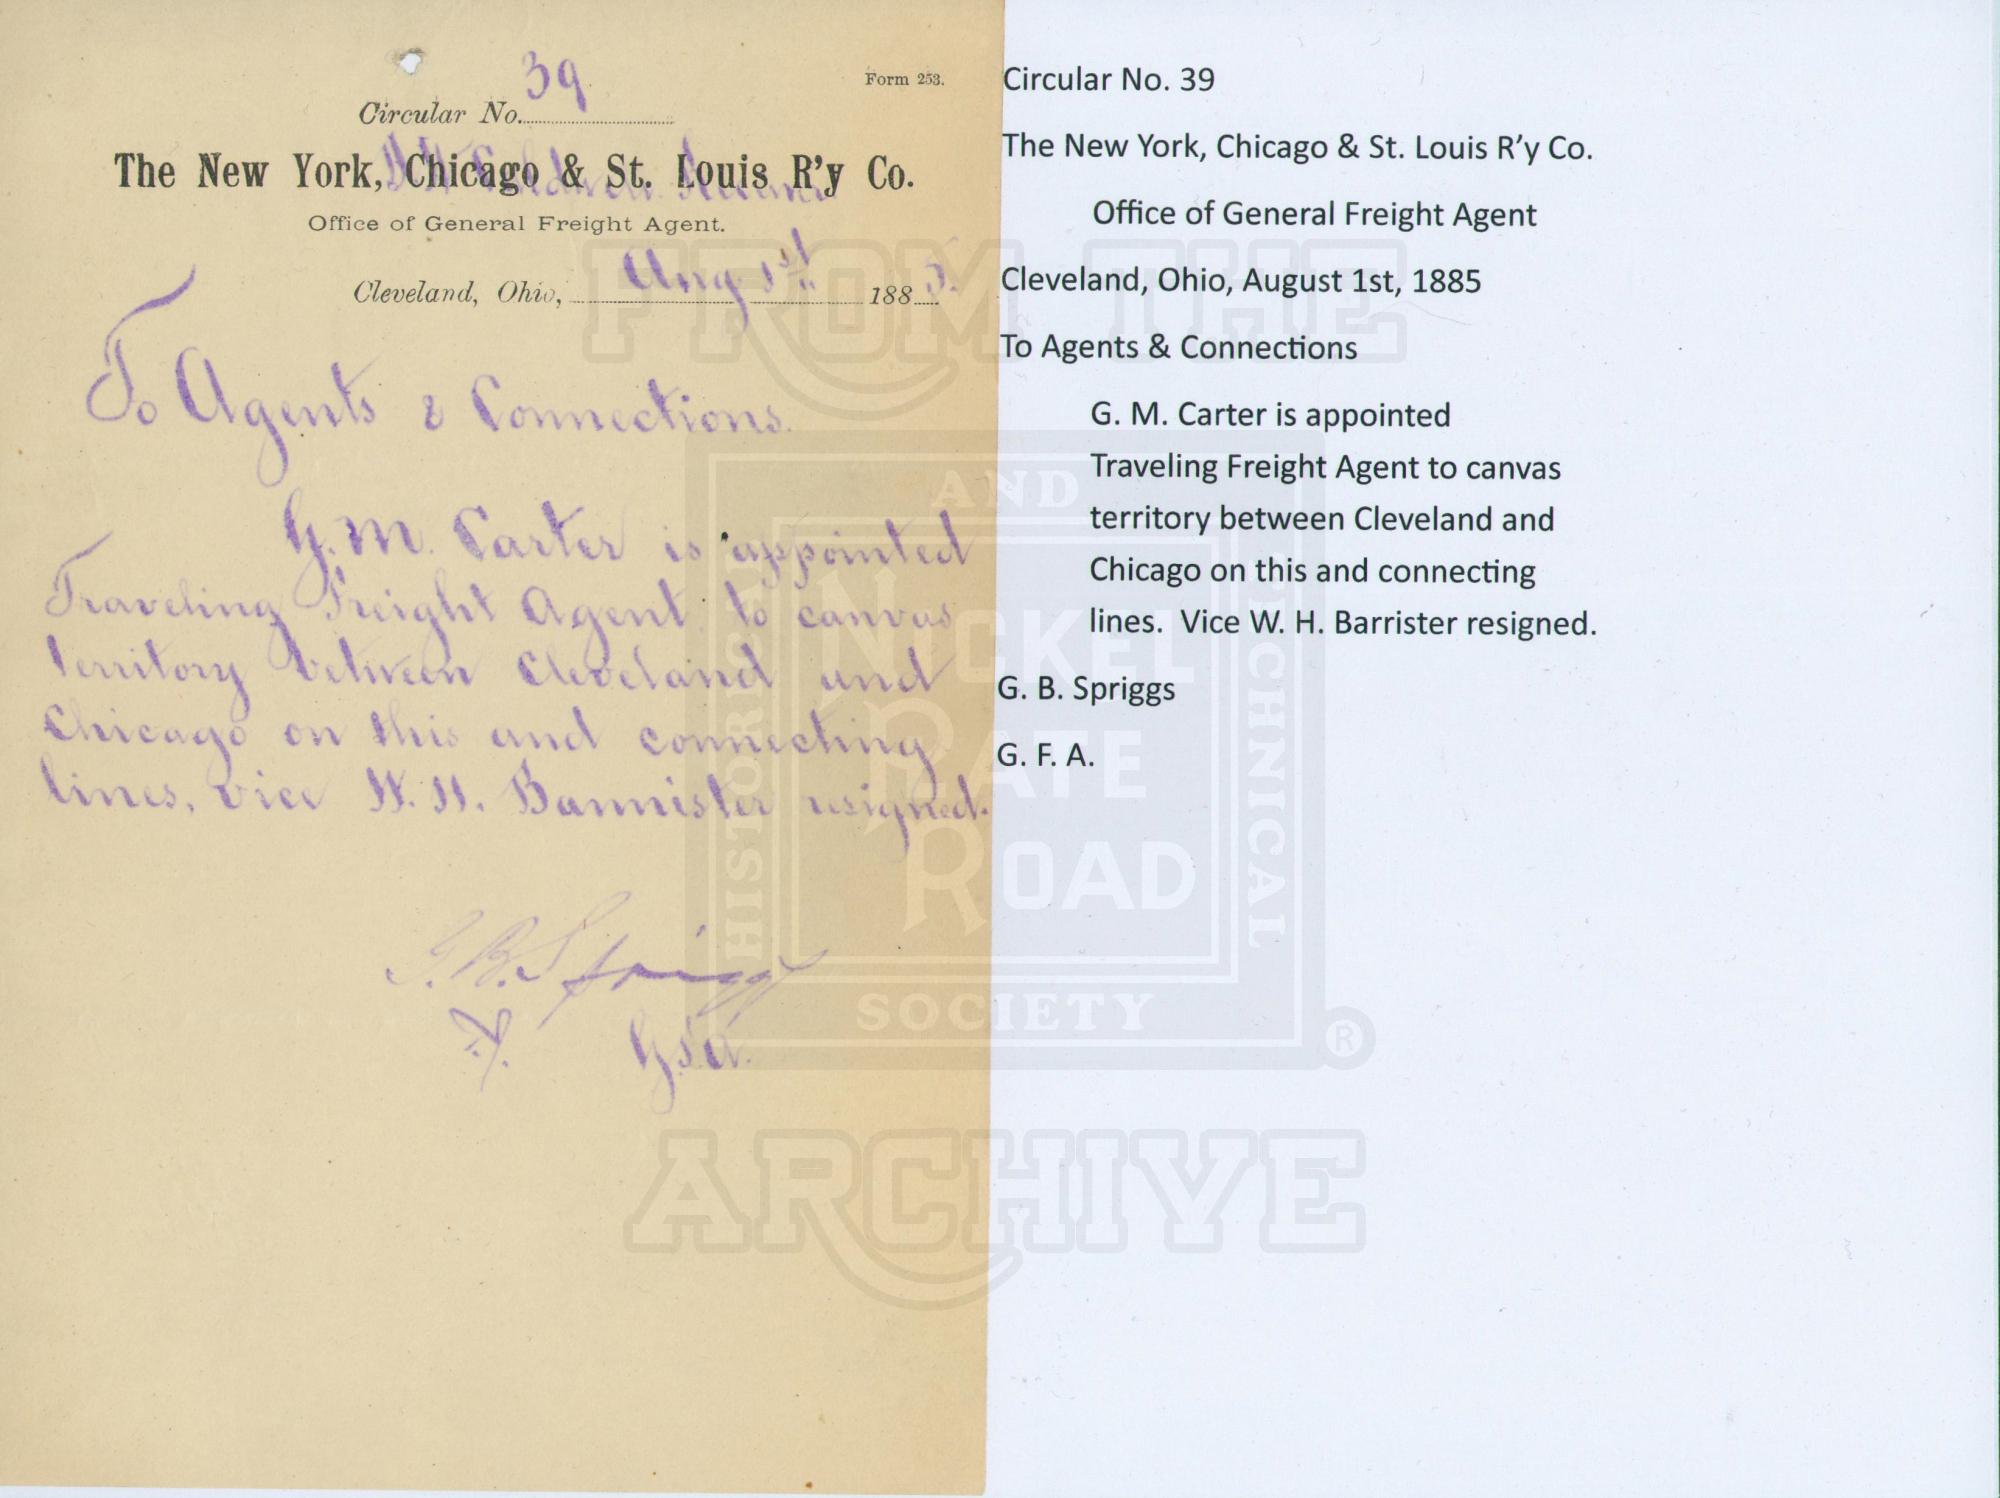 39
Form 253.
Circular No.
The New York, Chicago & St. Louis R'y Co.
Office of General Freight Agent.
Cleveland, Ohio, Aug 1st 1885.
To Agents & Connections.
G. M. Carter is appointed
Traveling Freight Agent to canvas
territory between Cleveland and
Chicago on this and connecting
lines, vice W. H. Bannister resigned.
G. B. Spriggs
G.F.A.
Circular No. 39
The New York, Chicago & St. Louis R'y Co.
Office of General Freight Agent
Cleveland, Ohio, August 1st, 1885
To Agents & Connections
G. M. Carter is appointed
Traveling Freight Agent to canvas
territory between Cleveland and
Chicago on this and connecting
lines. Vice W. H. Barrister resigned.
G. B. Spriggs
G. F. A.
FROM THE
NICKEL
PLATE
ROAD
HISTORICAL
AND
TECHNICAL
SOCIETY
®
ARCHIVE